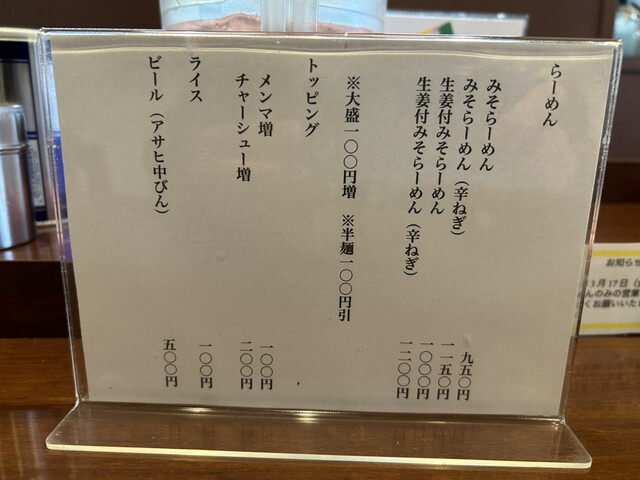 らーめん
みそらーめん 九五〇円
みそらーめん（辛ねぎ） 一一五〇円
生姜付みそらーめん 一〇〇〇円
生姜付みそらーめん（辛ねぎ） 一二〇〇円
※大盛一〇〇円増 ※半麺一〇〇円引
トッピング
メンマ増 一〇〇円
チャーシュー増 二〇〇円
ライス 一〇〇円
ビール（アサヒ中びん） 五〇〇円
お知らせ
3月17日
んのみの営業
くお願いいた